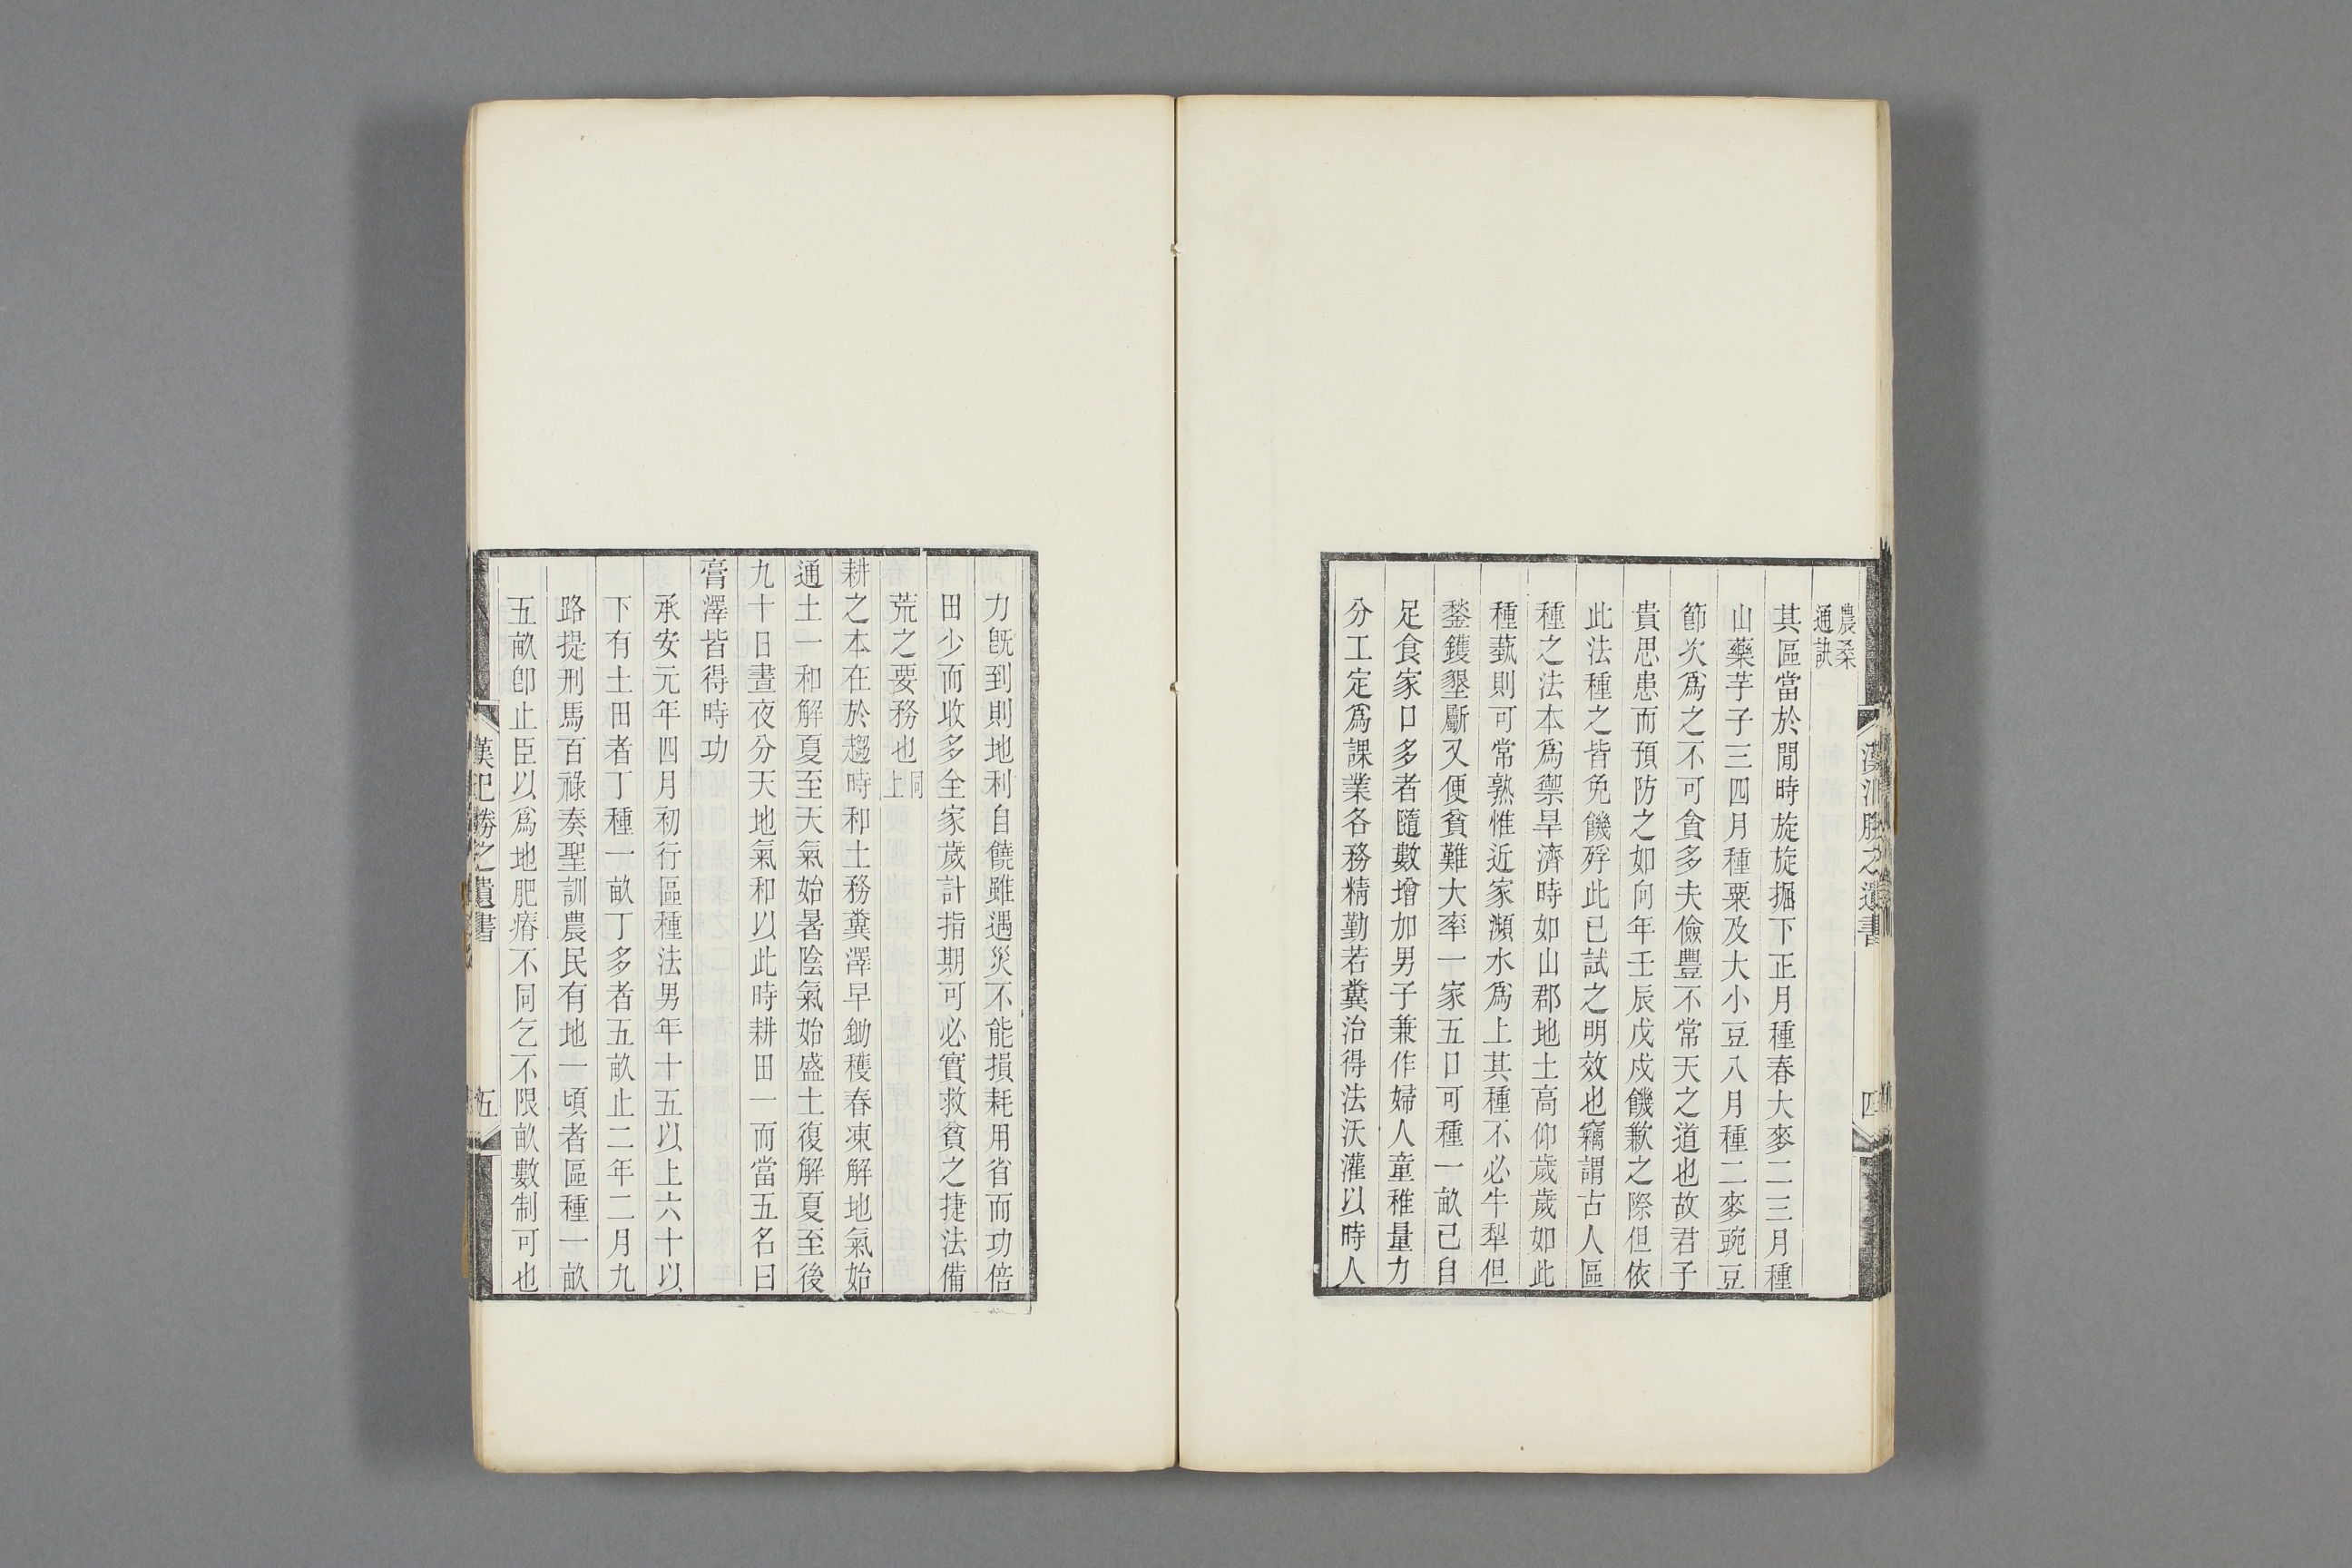 農桑
通訣
其區當於閒時旋旋掘下正月種春大麥二三月種
山藥芋子三四月種粟及大小豆八月種二麥豌豆
節次爲之不可貪多夫儉豐不常天之道也故君子
貴思患而預防之如向年壬辰戊戌饑歉之際但依
此法種之皆免餓殍此已試之明效也竊謂古人區
種之法本爲禦旱濟時如山郡地土高仰歲歲如此
種蓺則可常熟惟近家瀕水爲上其種不必牛犁但
鍫钁墾斸又便貧難大率一家五口可種一畝已自
足食家口多者隨數增加男子兼作婦人童稚量力
分工定爲課業各務精勤若糞治得法沃灌以時人
漢氾勝之遺書 四
力既到則地利自饒雖遇災不能損耗用省而功倍
田少而收多全家歲計指期可必實救貧之捷法備
荒之要務也同上
耕之本在於趨時和土務糞澤早鋤穫春凍解地氣始
通土一和解夏至天氣始暑陰氣始盛土復解夏至後
九十日晝夜分天地氣和以此時耕田一而當五名曰
膏澤皆得時功
承安元年四月初行區種法男年十五以上六十以
下有土田者丁種一畝丁多者五畝止二年二月九
路提刑馬百祿奏聖訓農民有地一頃者區種一畝
五畝卽止臣以爲地肥瘠不同乞不限畝數制可也
漢氾勝之遺書 五